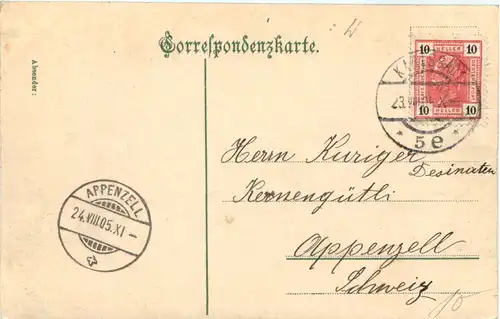 Correspondenzkarte.
Absender:
10 HELLER 10
10 HELLER 10
KARLSBAD
23.VIII.05.X
* 5e *
Herrn Kuriger
Desinateur
Kernengütli
Appenzell
Schweiz
APPENZELL
24.VIII.05.XI-
10